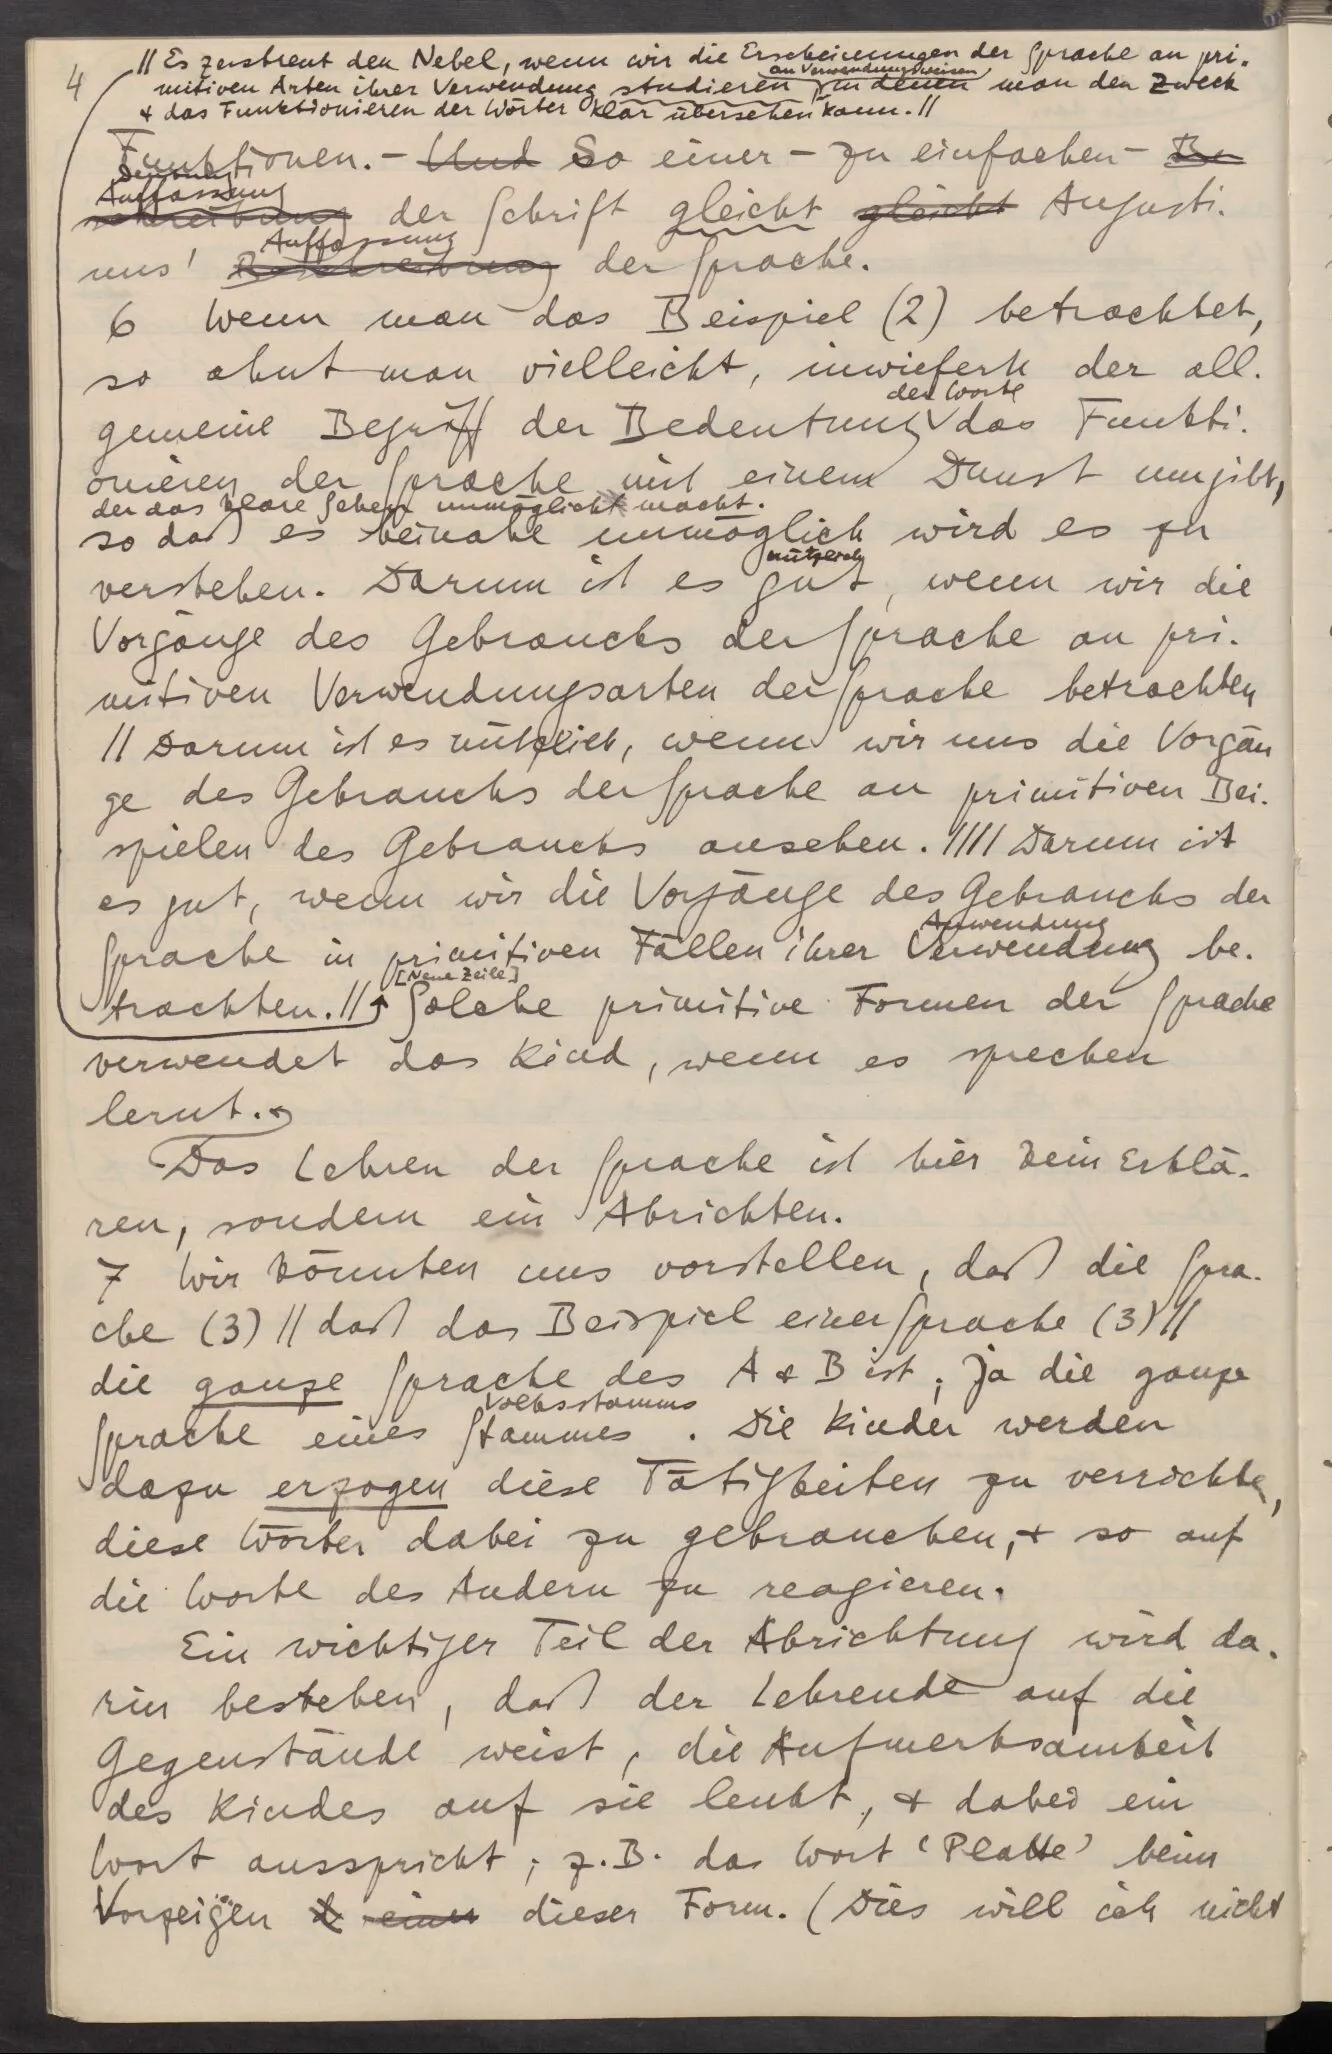 4
// Es zerstreut den Nebel, wenn wir die Erscheinungen der Sprache an pri-
an Verwendungsweisen
mitiven Arten ihrer Verwendung studieren, in denen man den Zweck
& das Funktionieren der Wörter klar übersehen kann. //
Funktionen. – Und So einer – zu einfachen – Be
Auffassung
schreibung der Schrift gleicht gleicht Augusti-
Auffassung
nus' Beschreibung der Sprache.
6 Wenn man das Beispiel (2) betrachtet,
so ahnt man vielleicht, inwiefern der all-
der Worte
gemeine Begriff der Bedeutung das Funkti-
onieren der Sprache mit einem Dunst umgibt,
der das klare Sehen unmöglich macht.
so daß es beinahe unmöglich wird es zu
nützlich
verstehen. Darum ist es gut, wenn wir die
Vorgänge des Gebrauchs der Sprache an pri-
mitiven Verwendungsarten der Sprache betrachten
// Darum ist es nützlich, wenn wir uns die Vorgän
ge des Gebrauchs der Sprache an primitiven Bei-
spielen des Gebrauchs ansehen. //// Darum ist
es gut, wenn wir die Vorgänge des Gebrauchs der
Anwendung
Sprache in primitiven Fällen ihrer Verwendung be-
[Neue Zeile]
trachten. // Solche primitive Formen der Sprache
verwendet das Kind, wenn es sprechen
lernt.
Das Lehren der Sprache ist hier kein Erklä-
ren, sondern ein Abrichten.
7 Wir könnten uns vorstellen, daß die Spra-
che (3) // daß das Beispiel einer Sprache (3) //
die ganze Sprache des A & B ist; ja die ganze
Volksstamms
Sprache eines Stammes. Die Kinder werden
dazu erzogen diese Tätigkeiten zu verrichten,
diese Wörter dabei zu gebrauchen, & so auf
die Worte des Andern zu reagieren.
Ein wichtiger Teil der Abrichtung wird da-
rin bestehen, daß der Lehrende auf die
Gegenstände weist, die Aufmerksamkeit
des Kindes auf sie lenkt, & dabei ein
Wort ausspricht; z.B. das Wort ‘Platte’ beim
Vorzeigen einer dieser Form. (Dies will ich nicht